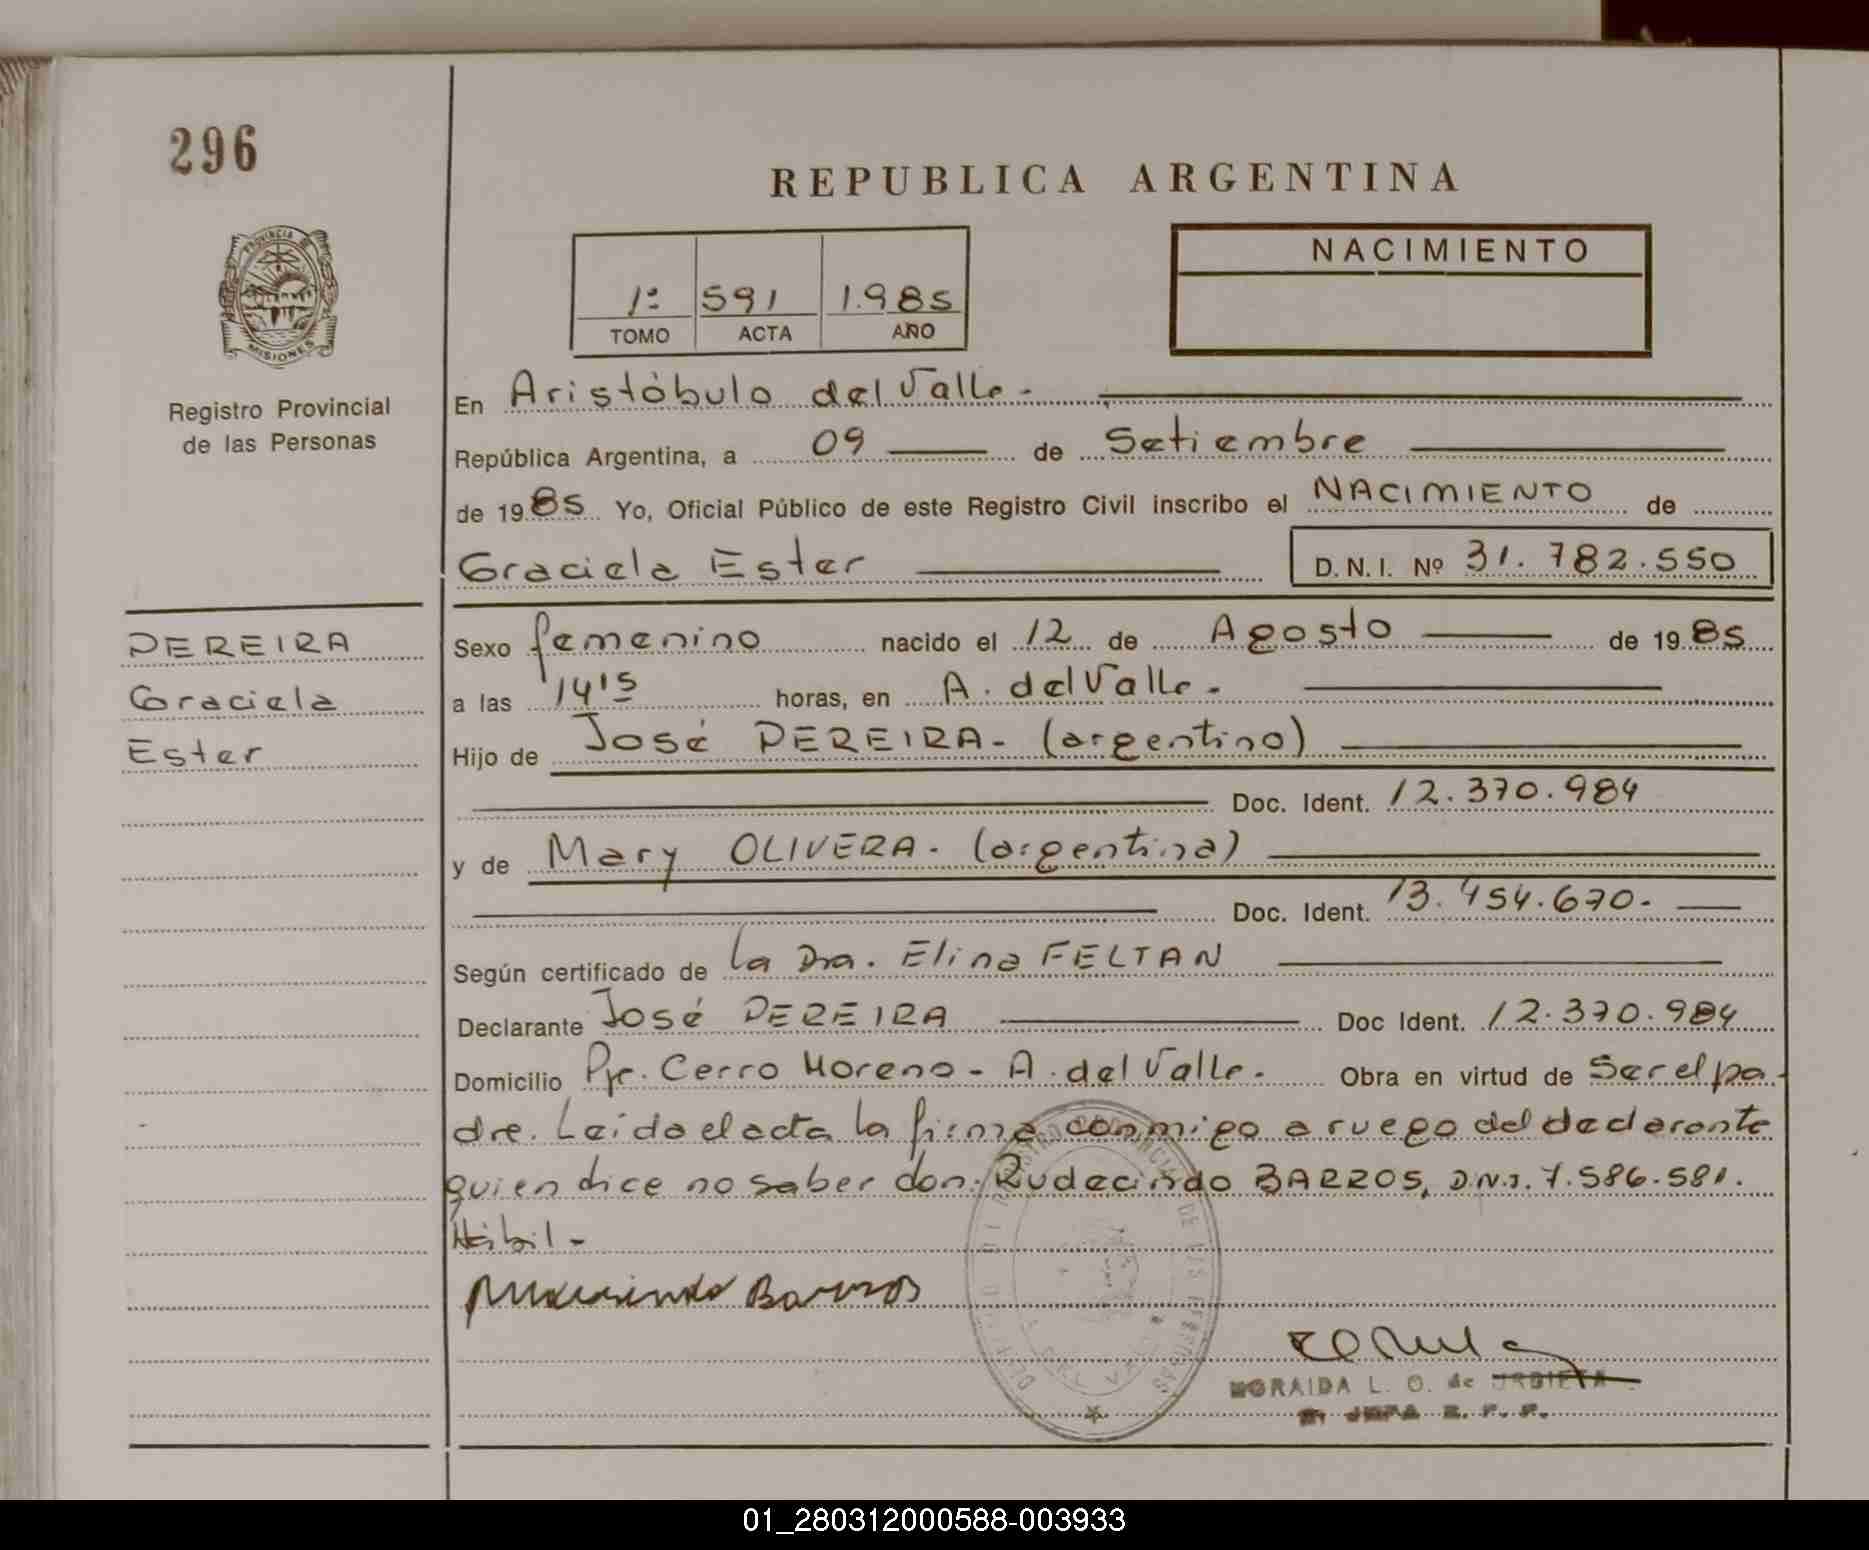 296
REPUBLICA ARGENTINA
PROVINCIA DE
MISIONES
Registro Provincial
de las Personas
1º 591 1.985
TOMO ACTA AÑO
NACIMIENTO
En Aristóbulo del Valle.-
República Argentina, a 09 de Setiembre
de 1985 Yo, Oficial Público de este Registro Civil inscribo el NACIMIENTO de
Graciela Ester D.N.I. Nº 31.782.550
PEREIRA
Graciela
Ester
Sexo femenino nacido el 12 de Agosto de 1985
a las 14 15 horas, en A. del Valle.-
Hijo de José PEREIRA- (argentino)
Doc. Ident. 12.370.984
y de Mary OLIVERA- (argentina)
Doc. Ident. 13.454.670-
Según certificado de la Dra. Elina FELTAN
Declarante José PEREIRA Doc Ident. 12.370.984
Domicilio Pje. Cerro Moreno - A. del Valle.- Obra en virtud de Ser el pa-
dre. Leida el acta la firma conmigo a ruego del declarante
quien dice no saber don: Rudecindo BARROS, D.N.I. 7.586.581.
Hábil-
Rudecindo Barros
MORAIDA L. O. de URBIETA
01_280312000588-003933